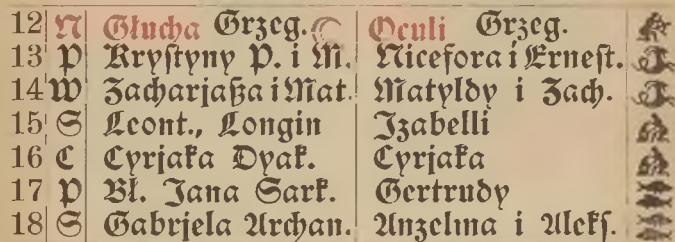 12 N Głucha Grzeg. Oculi Grzeg.
13 P Kryſtyny P. i M. Nicefora i Erneſt.
14 W Zacharjaßa i Mat. Matyldy i Zach.
15 S Leont., Longin Izabelli
16 C Cyrjaka Dyak. Cyrjaka
17 P Bł. Jana Sark. Gertrudy
18 S Gabrjela Archan. Anzelma i Alekſ.